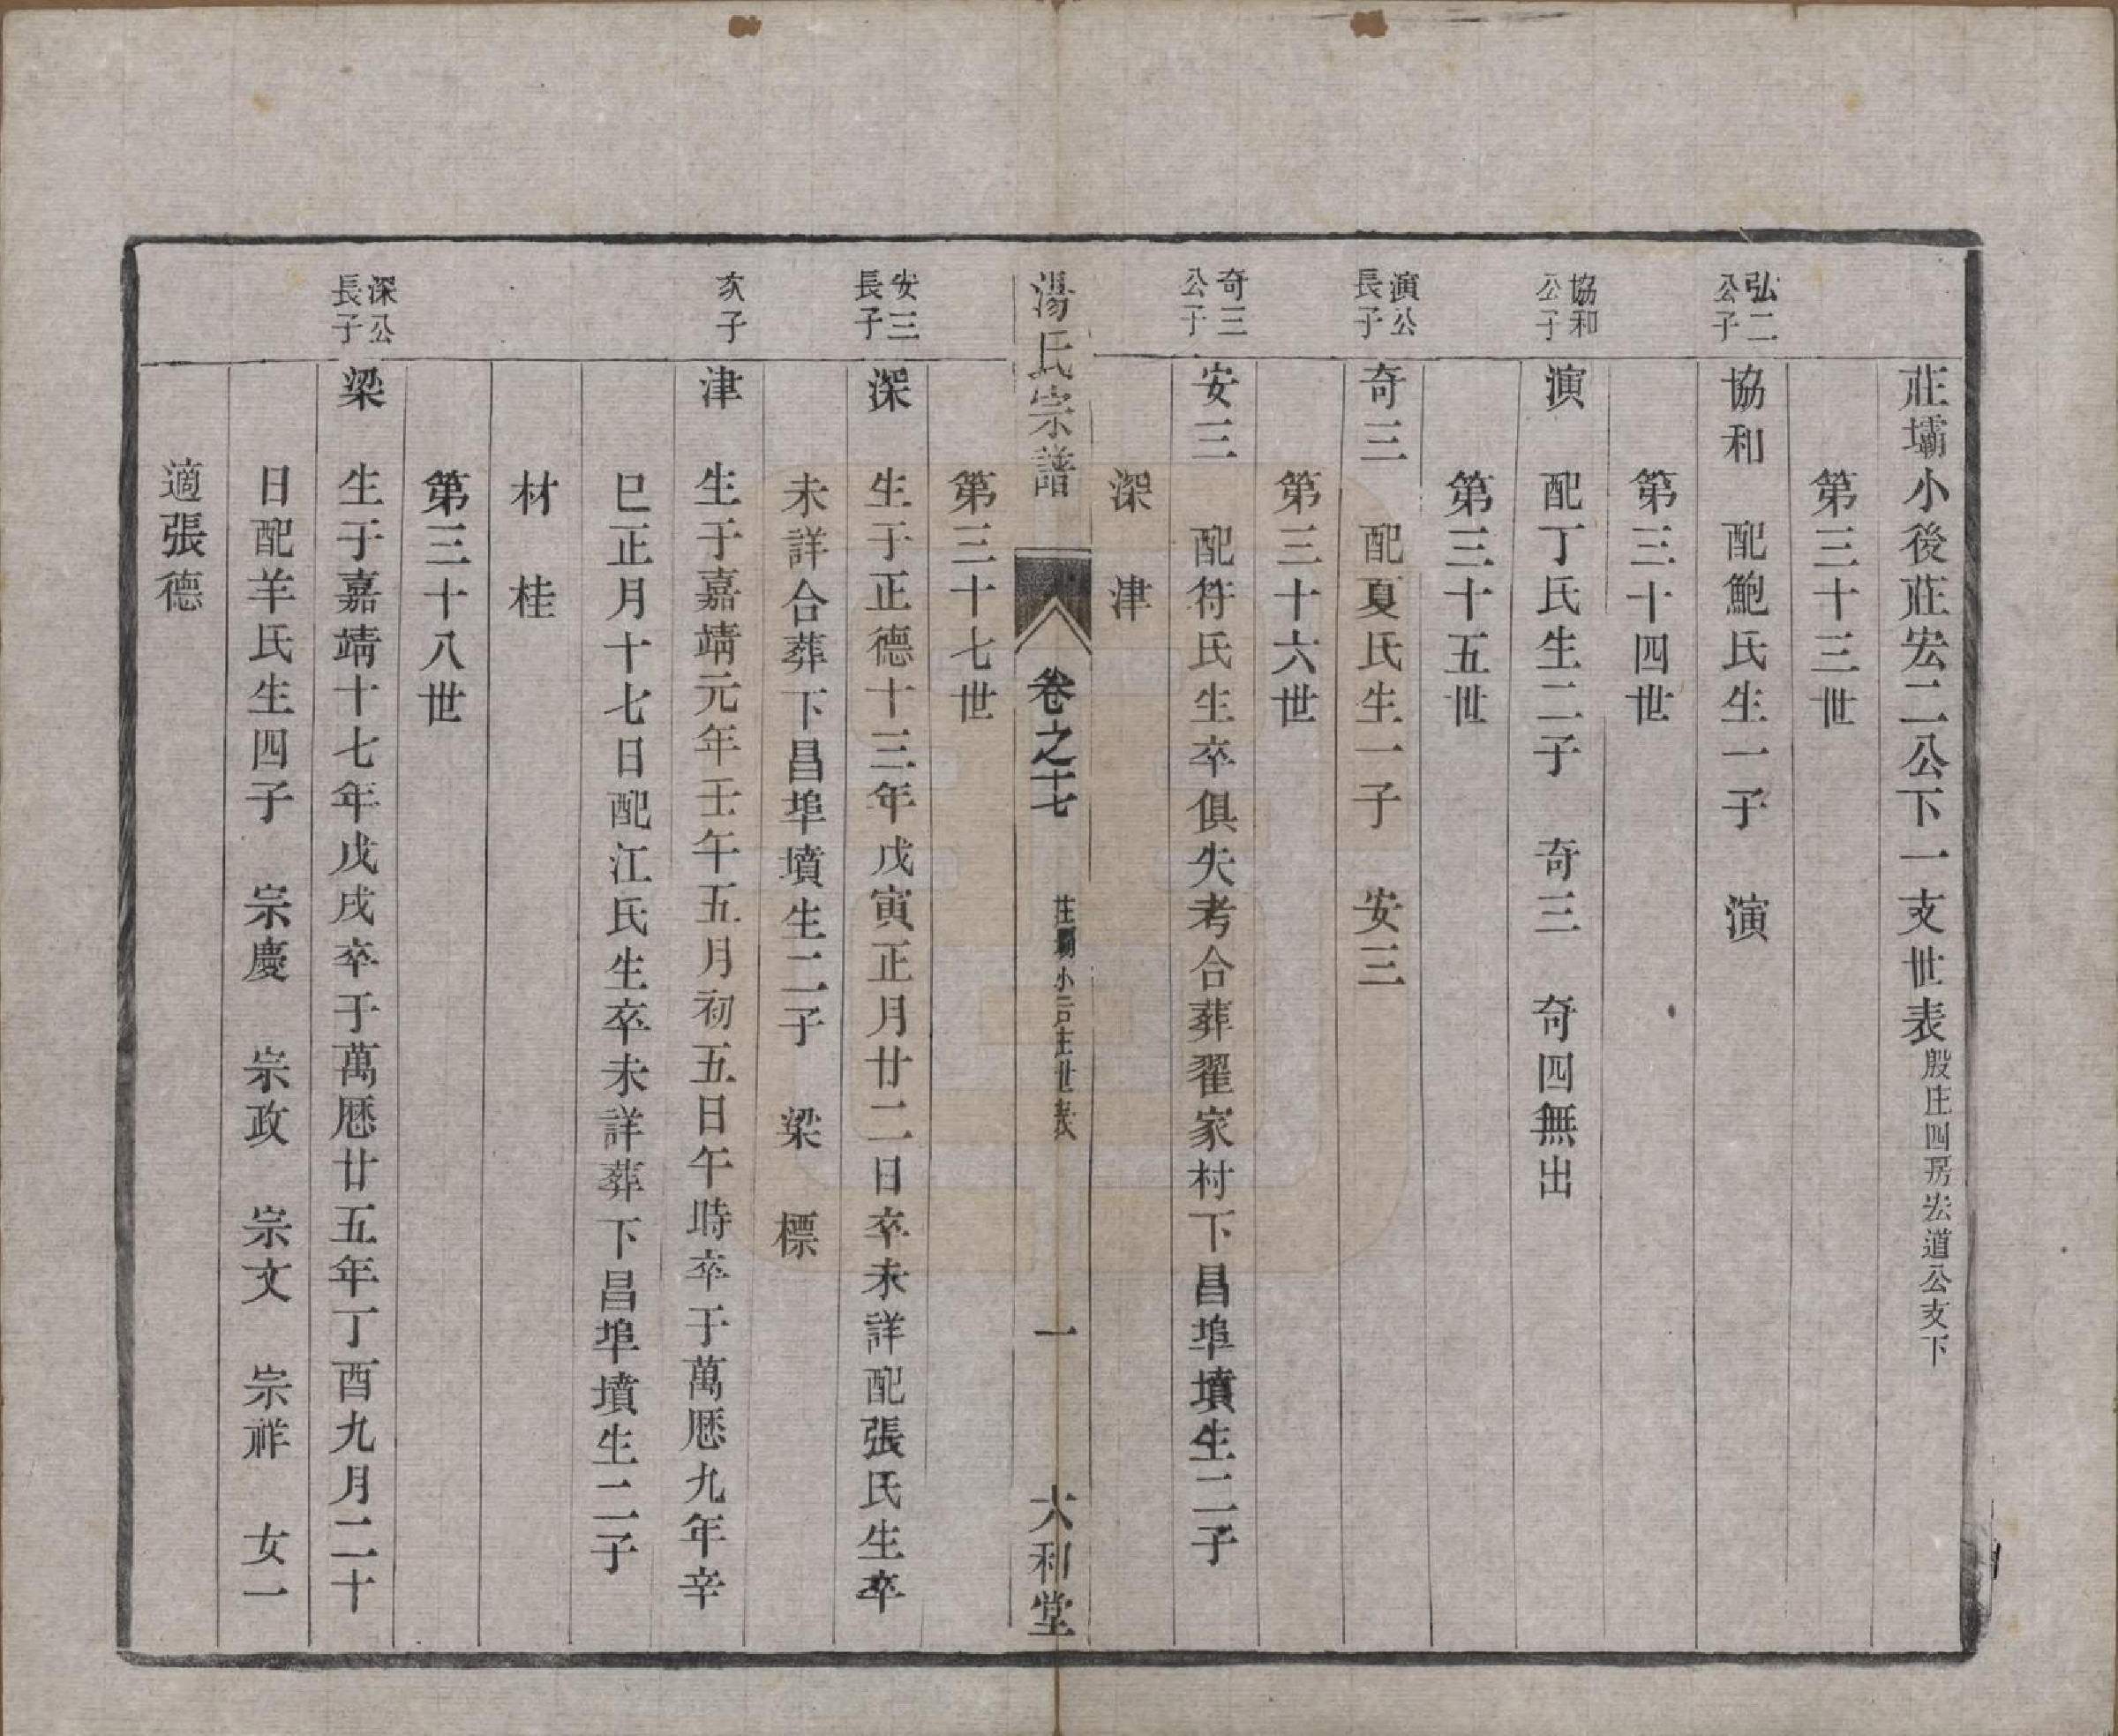 莊壩小後莊宏二公下一支世表殷庄四房宏道公支下
第三十三世
弘二公子
協和 配鮑氏生一子 演
第三十四世
協和公子
演 配丁氏生二子 奇三 奇四無出
第三十五世
演公長子
奇三 配夏氏生一子 安三
第三十六世
奇三公子
安三 配符氏生卒俱失考合葬翟家村下昌埠墳生二子
深 津
湯氏宗譜 卷之十七 庄壩小后庄世表 一 六和堂
第三十七世
安三長子
深 生于正德十三年戊寅正月廿二日卒未詳配張氏生卒
未詳合葬下昌埠墳生二子 梁 標
次子
津 生于嘉靖元年壬午五月初五日午時卒于萬厯九年辛
巳正月十七日配江氏生卒未詳葬下昌埠墳生二子
材 桂
第三十八世
深公長子
梁 生于嘉靖十七年戊戌卒于萬厯廿五年丁酉九月二十
日配羊氏生四子 宗慶 宗政 宗文 宗祥 女一
適張德